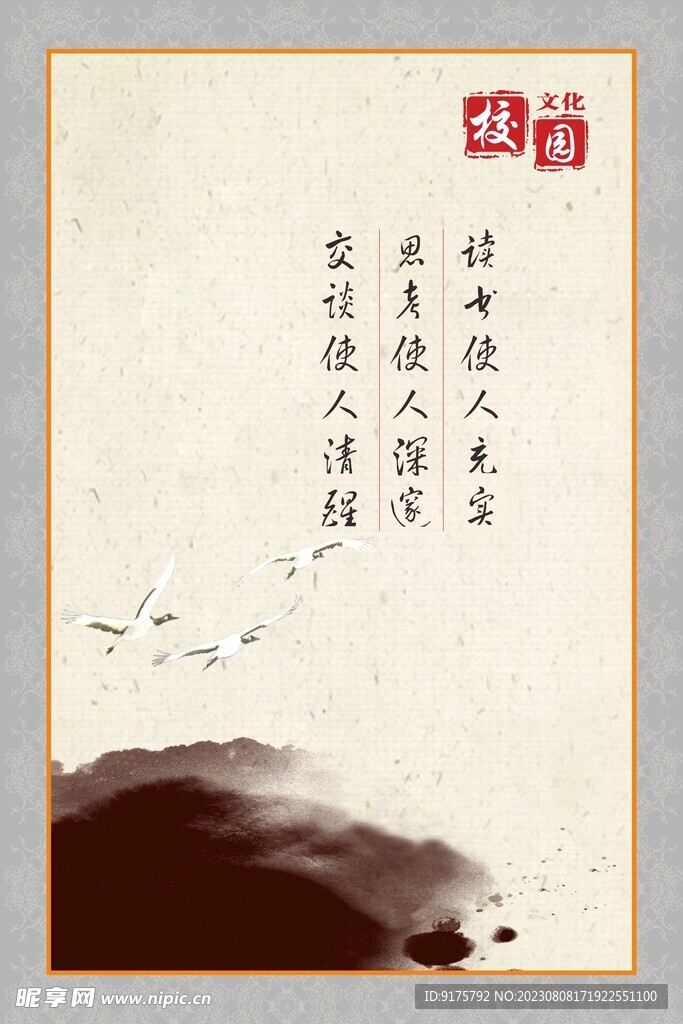 校园
文化
读书使人充实
思考使人深邃
交谈使人清醒
昵享网 www.nipic.cn
ID:9175792 NO:20230808171922551100